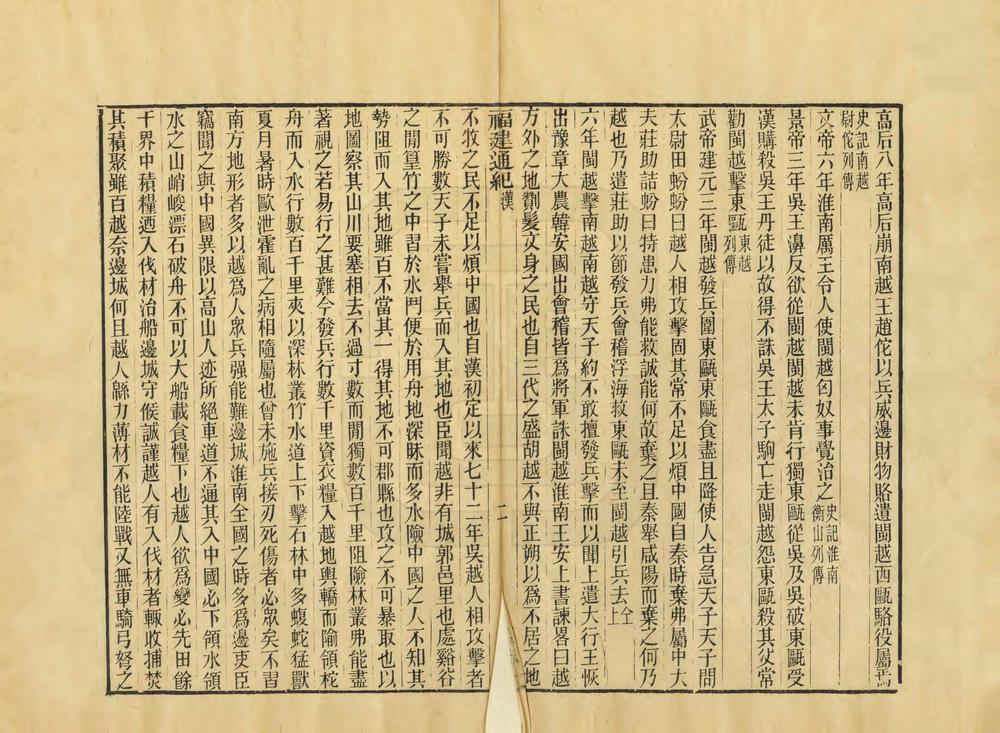 高后八年高后崩南越王趙佗以兵威邊財物賂遺閩越西甌駱役屬焉
史記南越
尉佗列傳
文帝六年淮南厲王令人使閩越匈奴事覺治之史記淮南
衡山列傳
景帝三年吳王濞反欲從閩越閩越未肯行獨東甌從吳及吳破東甌受
漢購殺吳王丹徒以故得不誅吳王太子駒亡走閩越怨東甌殺其父常
勸閩越擊東甌東越
列傳
武帝建元三年閩越發兵圍東甌東甌食盡且降使人告急天子天子問
太尉田蚡蚡曰越人相攻擊固其常不足以煩中國自秦時棄弗屬中大
夫莊助詰蚡曰特患力弗能救誠能何故棄之且秦舉咸陽而棄之何乃
越也乃遣莊助以節發兵會稽浮海救東甌未至閩越引兵去仝
上
六年閩越擊南越南越守天子約不敢擅發兵擊而以聞上遣大行王恢
出豫章大農韓安國出會稽皆為將軍誅閩越淮南王安上書諫畧曰越
方外之地劗髮文身之民也自三代之盛胡越不與正朔以為不居之地
福建通紀漢 二
不牧之民不足以煩中國也自漢初定以來七十二年吳越人相攻擊者
不可勝數天子未嘗舉兵而入其地也臣聞越非有城郭邑里也處谿谷
之閒篁竹之中習於水鬥便於用舟地深昧而多水險中國之人不知其
勢阻而入其地雖百不當其一得其地不可郡縣也攻之不可暴取也以
地圖察其山川要塞相去不過寸數而閒獨數百千里阻險林叢弗能盡
著視之若易行之甚難今發兵行數千里資衣糧入越地輿轎而隃領柁
舟而入水行數百千里夾以深林叢竹水道上下擊石林中多蝮蛇猛獸
夏月暑時歐泄霍亂之病相隨屬也曾未施兵接刃死傷者必眾矣不習
南方地形者多以越為人眾兵强能難邊城淮南全國之時多為邊吏臣
竊聞之與中國異限以高山人迹所絕車道不通其入中國必下領水領
水之山峭峻漂石破舟不可以大船載食糧下也越人欲為變必先田餘
干界中積糧迺入伐材治船邊城守候誠謹越人有入伐材者輒收捕焚
其積聚雖百越奈邊城何且越人緜力薄材不能陸戰又無車騎弓弩之